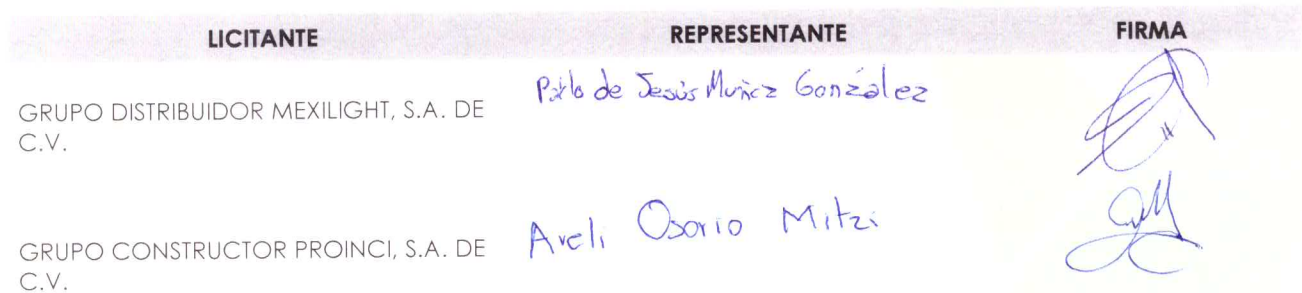 LICITANTE REPRESENTANTE FIRMA
GRUPO DISTRIBUIDOR MEXILIGHT, S.A. DE C.V. Pablo de Jesús Muñoz González
GRUPO CONSTRUCTOR PROINCI, S.A. DE C.V. Areli Osorio Mitzi